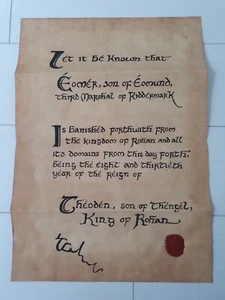 Let it be known that
Éomér, son of Éomund,
Third Marshal of Riddermark
Is banished forthwith from
the kingdom of Rohan and all
its domains from this day forth,
being the eight and thirtieth
year of the reign of
Théoden, son of Thengel,
King of Rohan